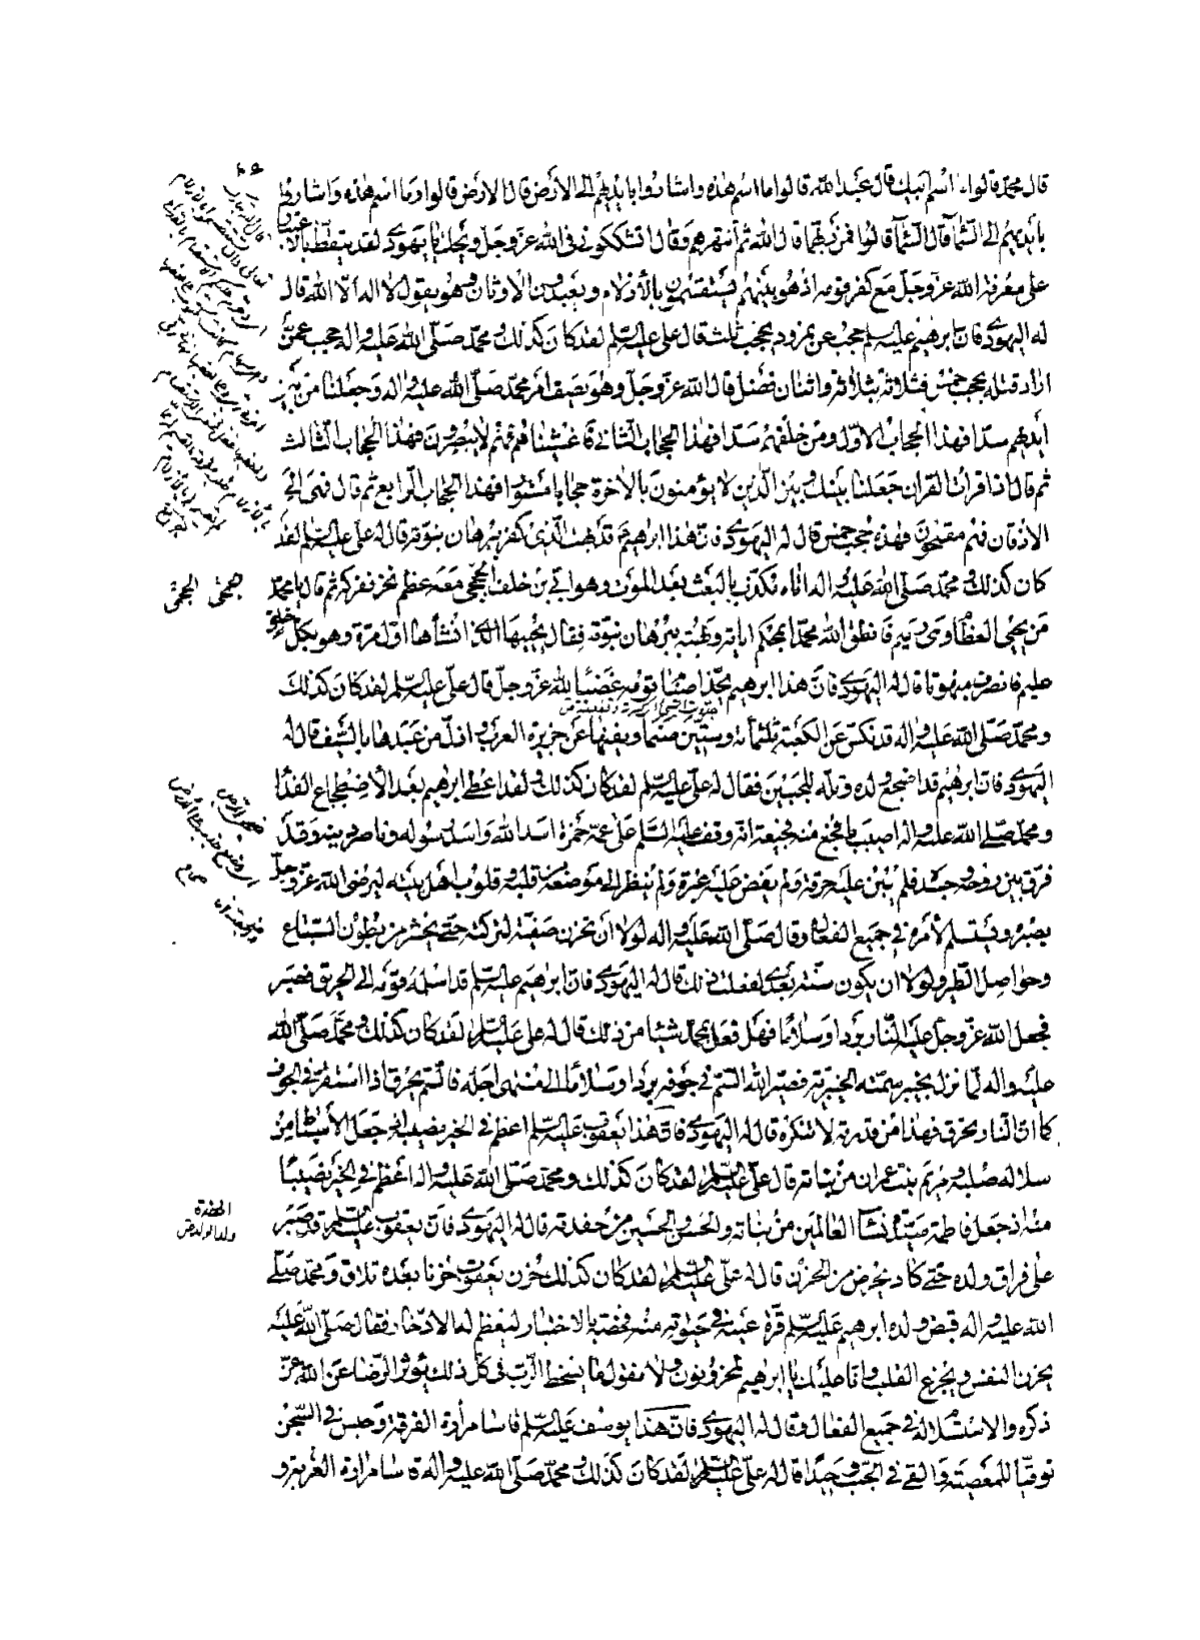 قال محمد قالوا ما اسم ابيك قال عبد الله قالوا ما اسم هذه واشاروا بايديهم الى الارض قال الارض قالوا وما اسم هذه واشاروا
بايديهم الى السماء قال السماء قالوا فمن ربهما قال الله ثم انتهرهم وقال اتشككوني في الله عز وجل ويحك يا يهودي لقد تيقظ بالاعتبار
على معرفة الله عز وجل مع كفر قومه اذ هو بينهم يستقسمون بالأزلام ويعبدون الاوثان وهو يقول لا اله الا الله قال
له اليهودي فان ابرهيم عليه السلم حجب عن نمرود بحجب ثلث قال علي عليه السلم لقد كان كذلك ومحمد صلى الله عليه واله حجب عمن
اراد قتله بحجب خمس فثلاثة بثلاثة واثنان فضل قال الله عز وجل وهو يصف امر محمد صلى الله عليه واله وجعلنا من بين
أيديهم سدا فهذا الحجاب الاول ومن خلفهم سدا فهذا الحجاب الثاني فاغشيناهم فهم لا يبصرون فهذا الحجاب الثالث
ثم قال اذا قرأت القران جعلنا بينك وبين الذين لا يؤمنون بالاخرة حجابا مستورا فهذا الحجاب الرابع ثم قال فهي الى
الاذقان فهم مقمحون فهذه حجب خمس قال له اليهودي فان هذا ابرهيم قد بهت الذي كفر ببرهان نبوته قال له علي عليه السلم لقد
كان كذلك ومحمد صلى الله عليه واله اتاه مكذب بالبعث بعد الموت وهو ابي بن خلف الجمحي معه عظم نخر ففركه ثم قال يا محمد
من يحيي العظام وهي رميم فانطق الله محمدا بمحكم اياته وبهته ببرهان نبوته فقال يحييها الذي انشأها اول مرة وهو بكل خلق
عليم فانصرف مبهوتا قال له اليهودي فان هذا ابرهيم جذ اصنام قومه غضبا لله عز وجل قال علي عليه السلم لقد كان كذلك
ومحمد صلى الله عليه واله قد نكس عن الكعبة ثلثمائة وستين صنما ونفيها عن جزيرة العرب واذل من عبدها بالسيف قال له
اليهودي فان ابرهيم قد اضجع ولده وتله للجبين فقال له علي عليه السلم لقد كان كذلك ولقد اعطي ابرهيم بعد الاضطجاع الفدا
ومحمد صلى الله عليه واله اصيب بافجع منه فجيعة انه وقف عليه السلم على عمه حمزة اسد الله واسد رسوله وناصر دينه وقد
فرق بين روحه وجسده فلم يبين عليه حرقة ولم يفض عليه عبرة ولم ينظر الى موضعه من قلبه وقلوب اهل بيته ليرضي الله عز وجل
بصبره ويستسلم لأمره في جميع الفعال وقال صلى الله عليه واله لولا أن تحزن صفية لتركته حتى يحشر من بطون السباع
وحواصل الطير ولولا ان يكون سنة بعدي لفعلت ذلك قال له اليهودي فان ابرهيم عليه السلم قد اسلمه قومه الى الحريق فصبر
فجعل الله عز وجل عليه النار بردا وسلاما فهل فعل بمحمد شيئا من ذلك قال له علي عليه السلم لقد كان كذلك ومحمد صلى الله
عليه واله لما نزل بخيبر سمته الخيبرية فصير الله السم في جوفه بردا وسلاما الى منتهى اجله فالسم يحرق اذا استقر في الجوف
كما ان النار تحرق فهذا من قدرته لا تنكره قال له اليهودي فان هذا يعقوب عليه السلم اعظم في الخير نصيبه اذ جعل الأسباط من
سلالة صلبه ومريم بنت عمران من بناته قال علي عليه السلم لقد كان كذلك ومحمد صلى الله عليه واله اعظم في الخير نصيبا
منه اذ جعل فاطمة سيدة نساء العالمين من بناته والحسن والحسين من حفدته قال له اليهودي فان يعقوب عليه السلم قد صبر
على فراق ولده حتى كاد يحرض من الحزن قال له علي عليه السلم لقد كان كذلك حزن يعقوب حزنا بعده تلاق ومحمد صلى
الله عليه واله قبض ولده ابرهيم عليه السلم قرة عينه في حيوته منه فخصه بالاختبار ليعظم له الادخار فقال صلى الله عليه
يحزن النفس ويجزع القلب وانا عليك يا ابرهيم لمحزونون ولا نقول ما يسخط الرب في كل ذلك يؤثر الرضا عن الله عز
ذكره والاستسلام له في جميع الفعال وقال له اليهودي فان هذا يوسف عليه السلم قاسا مرارة الفرقة وحبس في السجن
توقيا للمعصية والقي في الجب وحيدا قال له علي عليه السلم لقد كان كذلك ومحمد صلى الله عليه واله قاسا مرارة الغربة و
جمحى الجمحي
الحفدة
ولد الولد ص